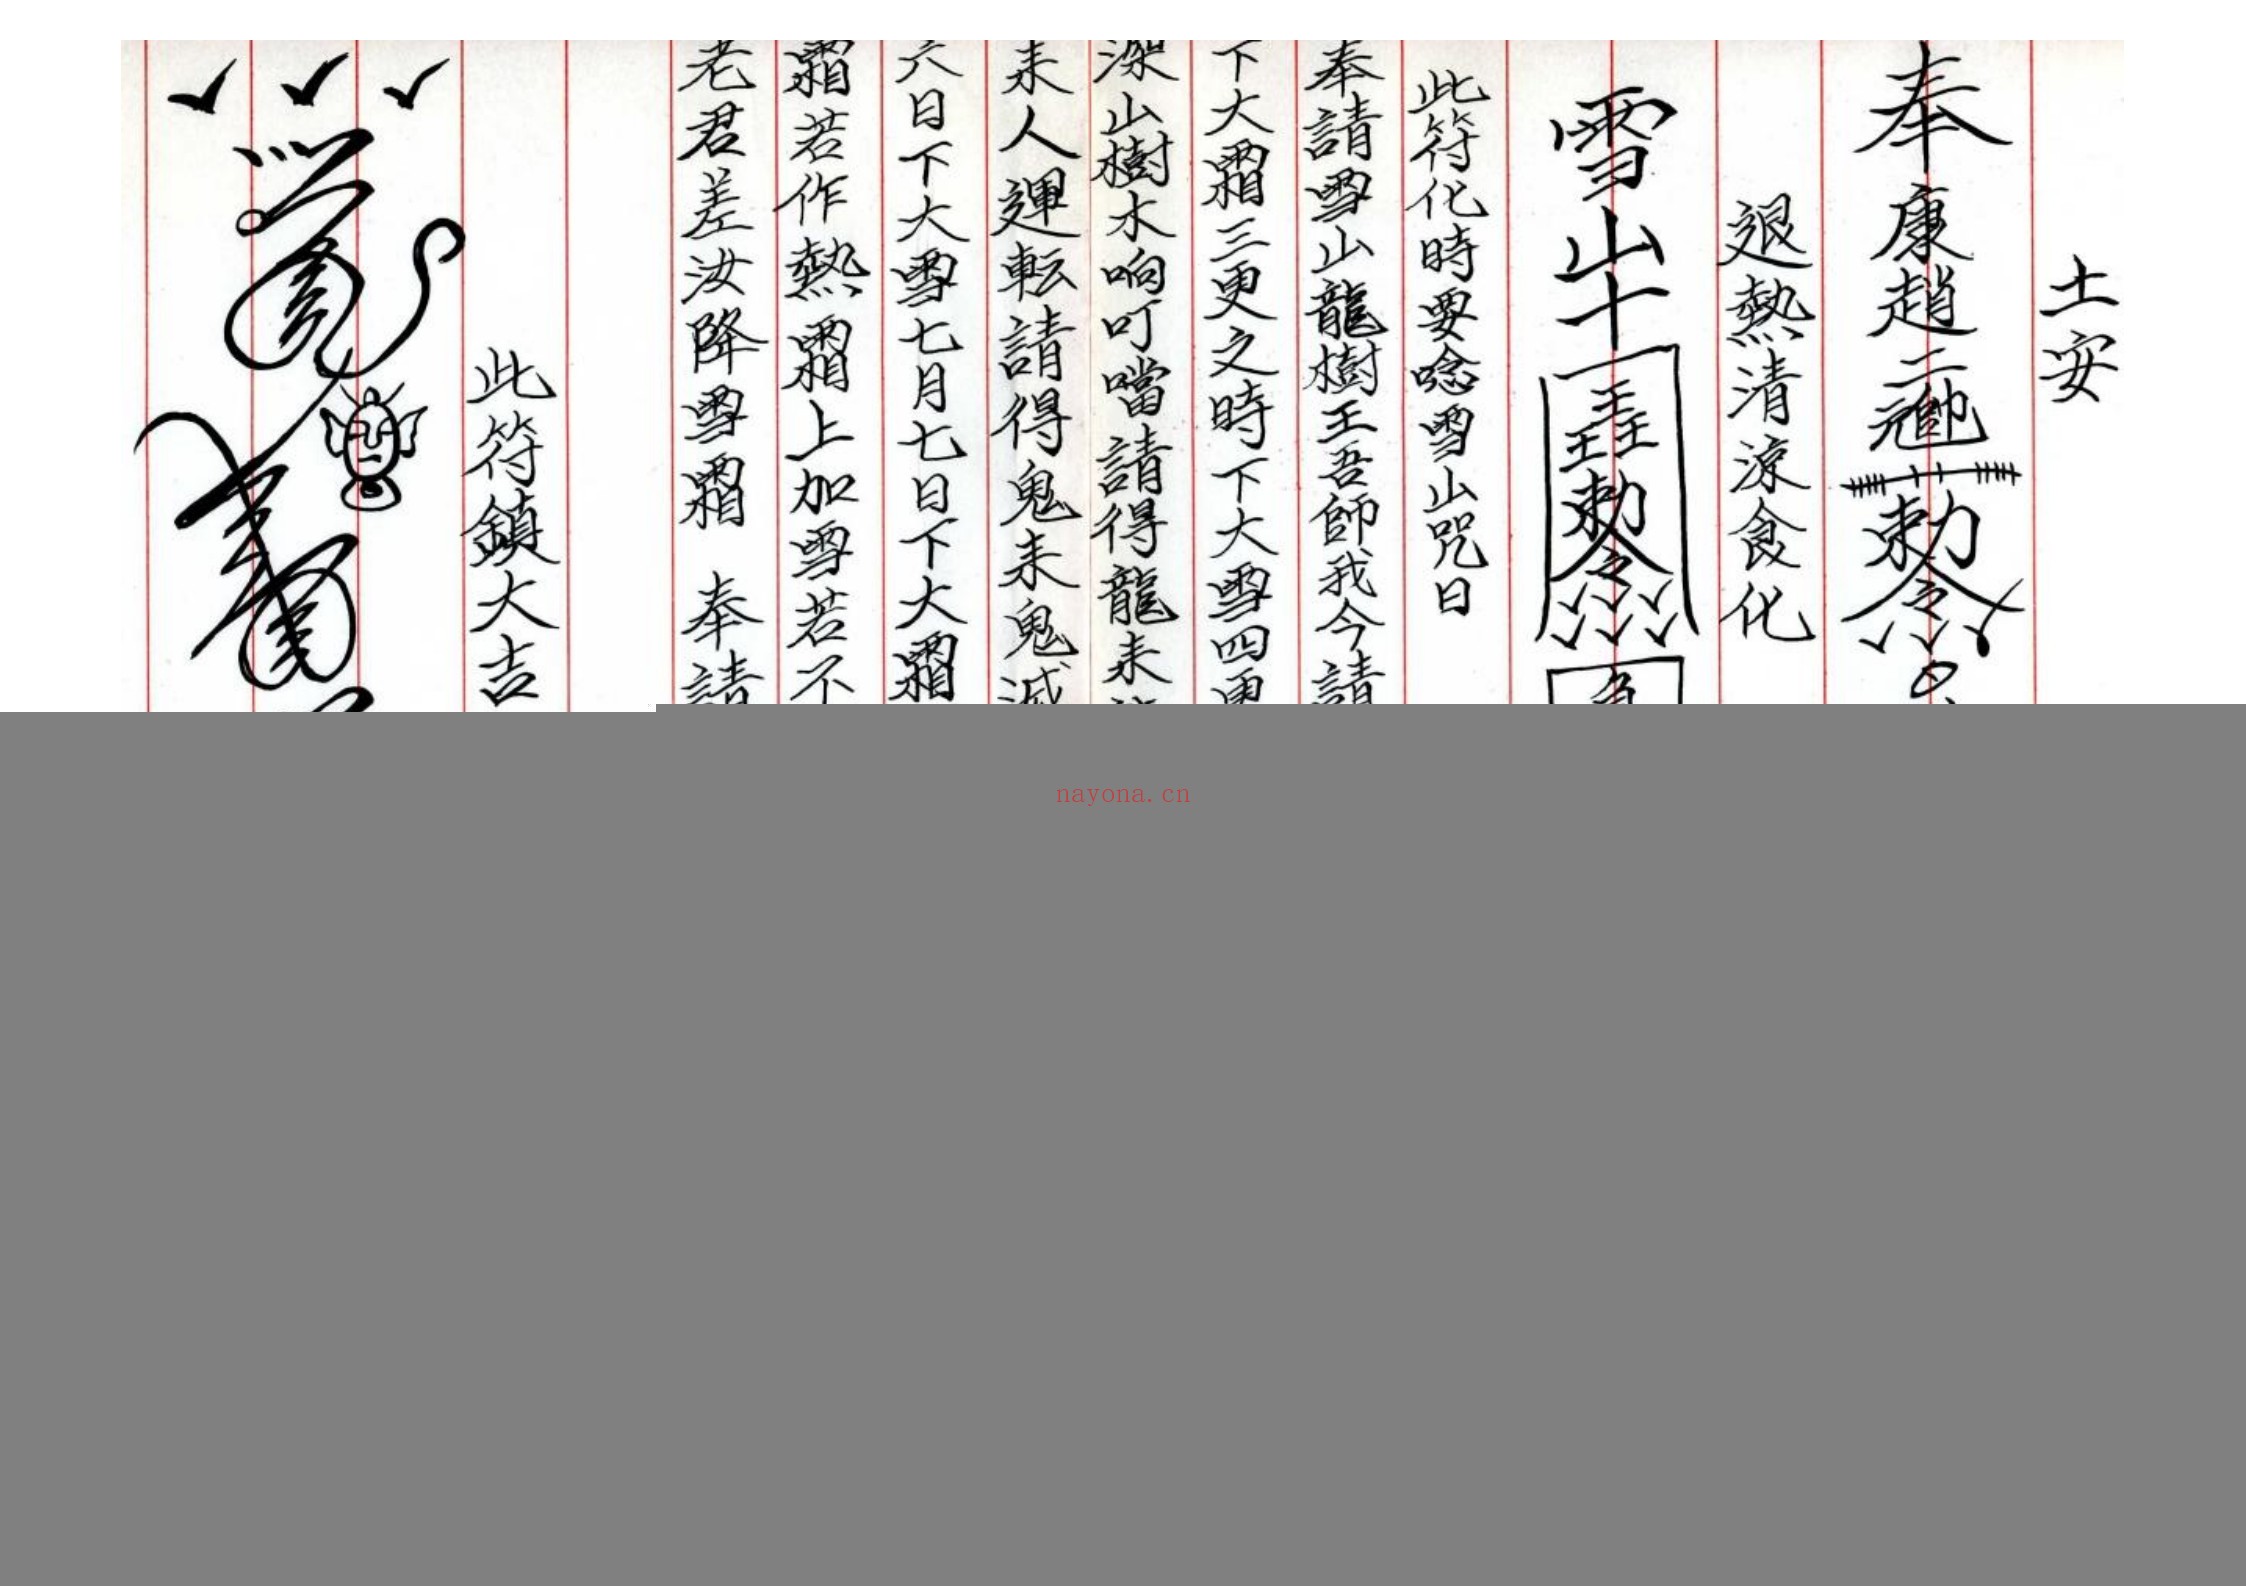 土安
奉康趙二元帥勅令
退熱清涼食化
雪山十
王王王勅令
此符化時要唸雪山咒日
奉請雪山龍樹王吾師我今請
下大霜三更之時下大雪四更
深山樹木响叮噹請得龍来
来人運転請得鬼来鬼滅
六日下大雪七月七日下大霜
霜若作熱霜上加雪若不
老君差汝降雪霜 奉請
此符鎮大吉
nayona.cn